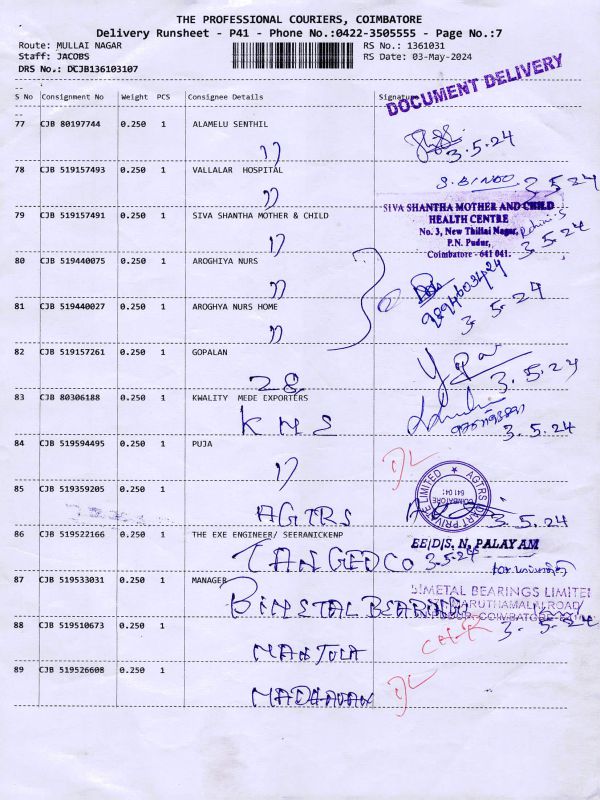 THE PROFESSIONAL COURIERS, COIMBATORE
Delivery Runsheet - P41 - Phone No.:0422-3505555 - Page No.:7
Route: MULLAI NAGAR RS No.: 1361031
Staff: JACOBS RS Date: 03-May-2024
DRS No.: DCJB136103107
DOCUMENT DELIVERY
S No Consignment No Weight PCS Consignee Details Signature
77 CJB 80197744 0.250 1 ALAMELU SENTHIL
3.5.24
78 CJB 519157493 0.250 1 VALLALAR HOSPITAL
3.5.24
79 CJB 519157491 0.250 1 SIVA SHANTHA MOTHER & CHILD
SIVA SHANTHA MOTHER AND CHILD
HEALTH CENTRE
No. 3, New Thillai Nagar,
P.N. Pudur,
Coimbatore - 641 041.
3.5.24
80 CJB 519440075 0.250 1 AROGHIYA NURS
81 CJB 519440027 0.250 1 AROGHYA NURS HOME
3.5.24
82 CJB 519157261 0.250 1 GOPALAN
28
3.5.24
83 CJB 80306188 0.250 1 KWALITY MEDE EXPORTERS
KMS
3.5.24
84 CJB 519594495 0.250 1 PUJA
DL
85 CJB 519359205 0.250 1
AGTRS
3.5.24
86 CJB 519522166 0.250 1 THE EXE ENGINEER/ SEERANICKENP
TANGEDCO 3.5.24
EE/D/S. N. PALAYAM
87 CJB 519533031 0.250 1 MANAGER
BIMETAL BEARING
BIMETAL BEARINGS LIMITED
3.5.24
88 CJB 519510673 0.250 1
MANJULA
89 CJB 519526608 0.250 1
MADHAVAN
DL